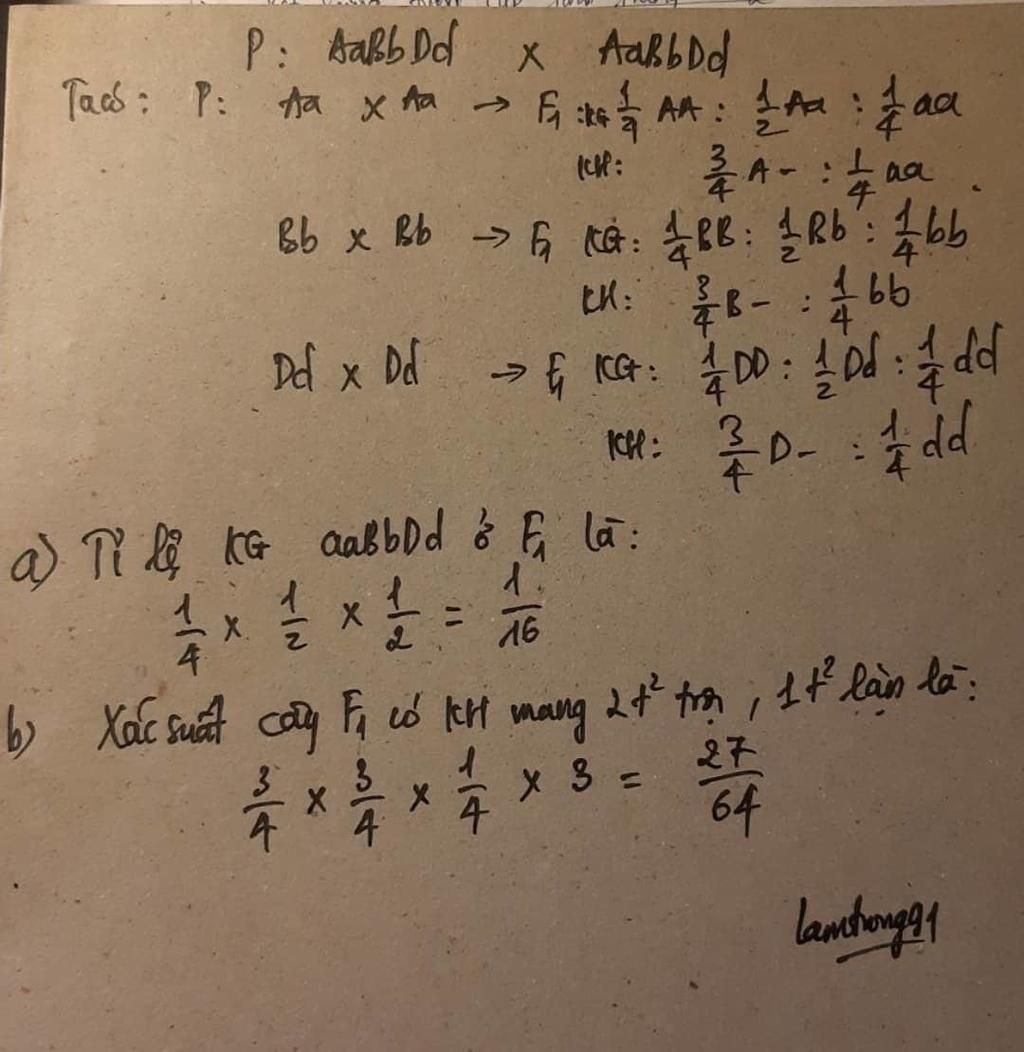 P: AaBbDd x AaBbDd
Ta có: P: Aa x Aa → F₁: KG 1/4 AA : 1/2 Aa : 1/4 aa
KH: 3/4 A- : 1/4 aa
Bb x Bb → F₁ KG: 1/4 BB : 1/2 Bb : 1/4 bb
KH: 3/4 B- : 1/4 bb
Dd x Dd → F₁ KG: 1/4 DD : 1/2 Dd : 1/4 dd
KH: 3/4 D- : 1/4 dd
a) Tỉ lệ KG aaBbDd ở F₁ là:
1/4 x 1/2 x 1/2 = 1/16
b) Xác suất cây F₁ có KH mang 2t² trội, 1t² lặn là:
3/4 x 3/4 x 1/4 x 3 = 27/64
lamtrong91